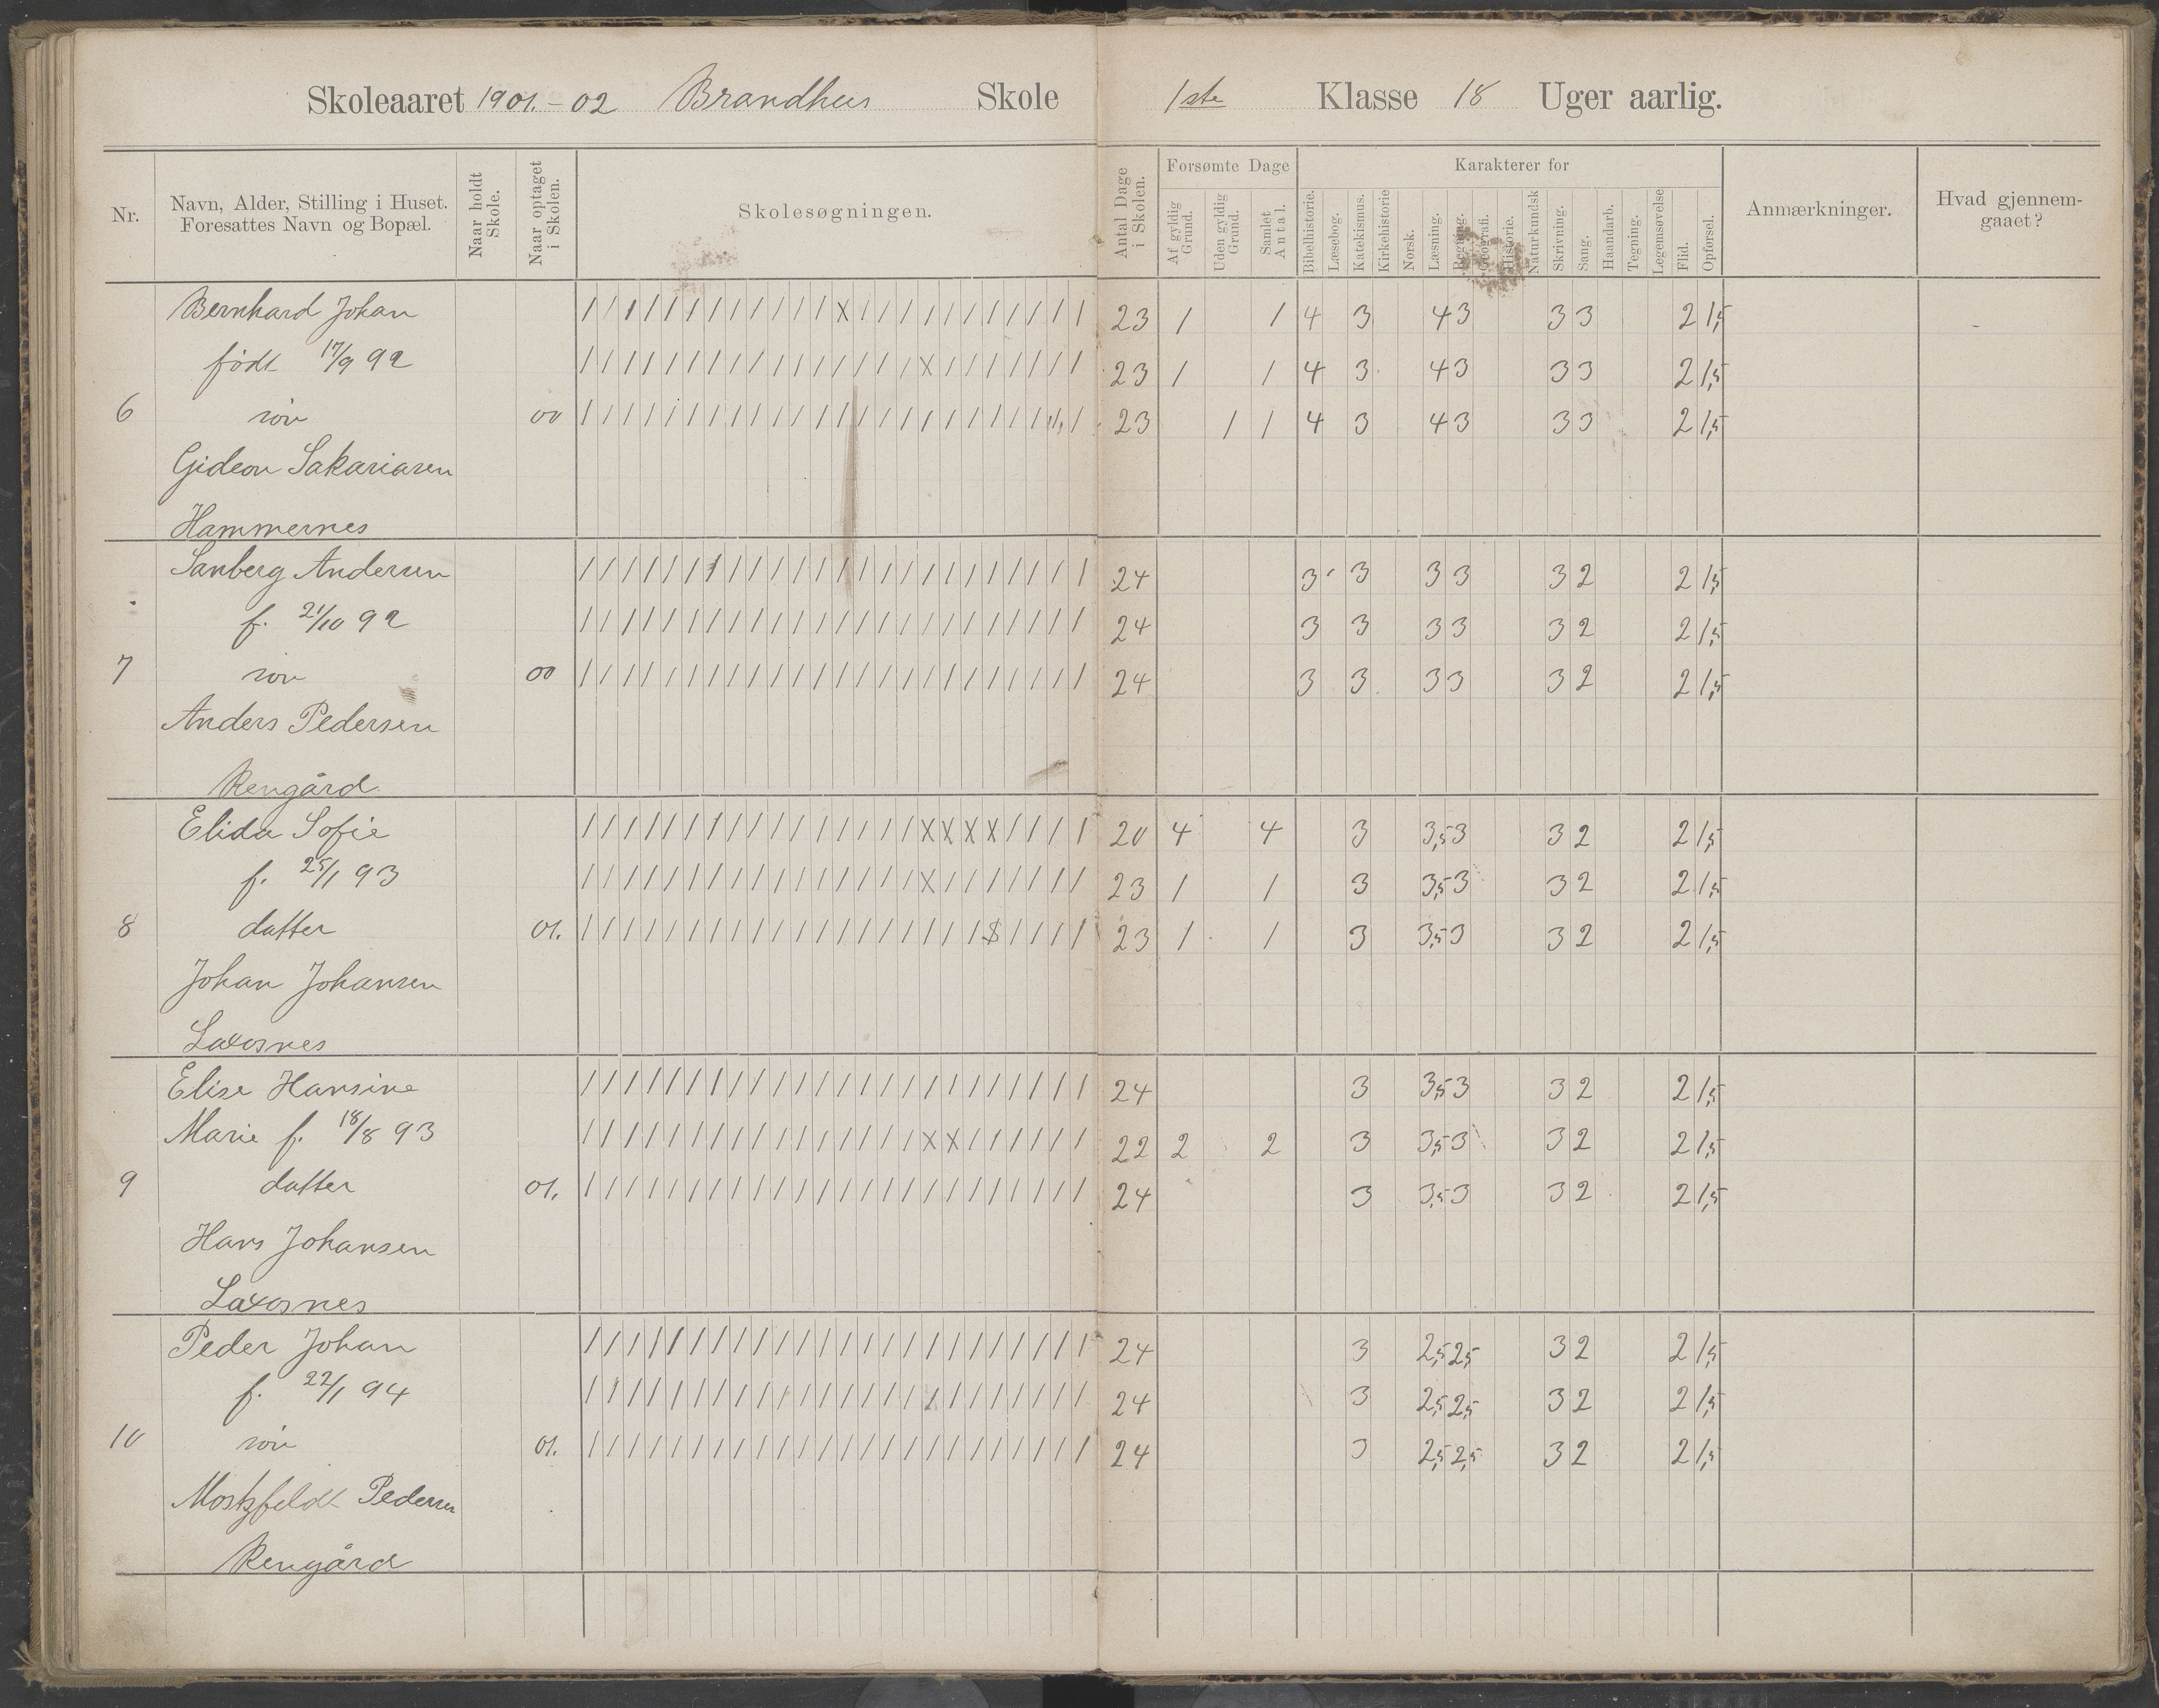 Skoleaaret 1901.-02 Brandhus Skole 1ste Klasse 18 Uger aarlig.
Nr.
Navn, Alder, Stilling i Huset.
Foresattes Navn og Bopæl.
Naar holdt Skole.
Naar optaget i Skolen.
Skolesøgningen.
Antal Dage i Skolen.
Forsømte Dage
Af gyldig Grund.
Uden gyldig Grund.
Samlet Antal.
Karakterer for
Bibelhistorie.
Læsebog.
Katekismus.
Kirkehistorie
Norsk.
Læsning.
Regning.
Geografi.
Historie.
Naturkundsk
Skrivning.
Sang.
Haandarb.
Tegning.
Legemsøvelse
Flid.
Opførsel.
Anmærkninger.
Hvad gjennem-
gaaet?
Bernhard Johan / / / / / / / / / / / / x / / / / / / / / / / / 23 1 1 4 3 4 3 3 3 2 1,5
født 17/9 92 / / / / / / / / / / / / / / / / x / / / / / / / 23 1 1 4 3 4 3 3 3 2 1,5
6 søn 00 / / / / / / / / / / / / / / / / / / / / / / / / 23 1 1 4 3 4 3 3 3 2 1,5
Gideon Sakariasen
Hammernes
Sanberg Andersen / / / / / / / / / / / / / / / / / / / / / / / / 24 3 3 3 3 3 2 2 1,5
f. 21/10 92 / / / / / / / / / / / / / / / / / / / / / / / / 24 3 3 3 3 3 2 2 1,5
7 søn 00 / / / / / / / / / / / / / / / / / / / / / / / / 24 3 3 3 3 3 2 2 1,5
Anders Pedersen
Rengård
Elida Sofie / / / / / / / / / / / / / / / / x x x x / / / / 20 4 4 3 3,5 3 3 2 2 1,5
f. 25/1 93 / / / / / / / / / / / / / / / / x / / / / / / / 23 1 1 3 3,5 3 3 2 2 1,5
8 datter 01. / / / / / / / / / / / / / / / / / / / / / / / 23 1 1 3 3,5 3 3 2 2 1,5
Johan Johansen
Laxosnes
Elise Hansine / / / / / / / / / / / / / / / / / / / / / / / / 24 3 3,5 3 3 2 2 1,5
Marie f. 18/8 93 / / / / / / / / / / / / / / / / x x / / / / / / 22 2 2 3 3,5 3 3 2 2 1,5
9 datter 01. / / / / / / / / / / / / / / / / / / / / / / / / 24 3 3,5 3 3 2 2 1,5
Hans Johansen
Laxosnes
Peder Johan / / / / / / / / / / / / / / / / / / / / / / / / 24 3 2,5 2,5 3 2 2 1,5
f. 22/1 94 / / / / / / / / / / / / / / / / / / / / / / / / 24 3 2,5 2,5 3 2 2 1,5
10 søn 01. / / / / / / / / / / / / / / / / / / / / / / / / 24 3 2,5 2,5 3 2 2 1,5
Pedersen
Rengård